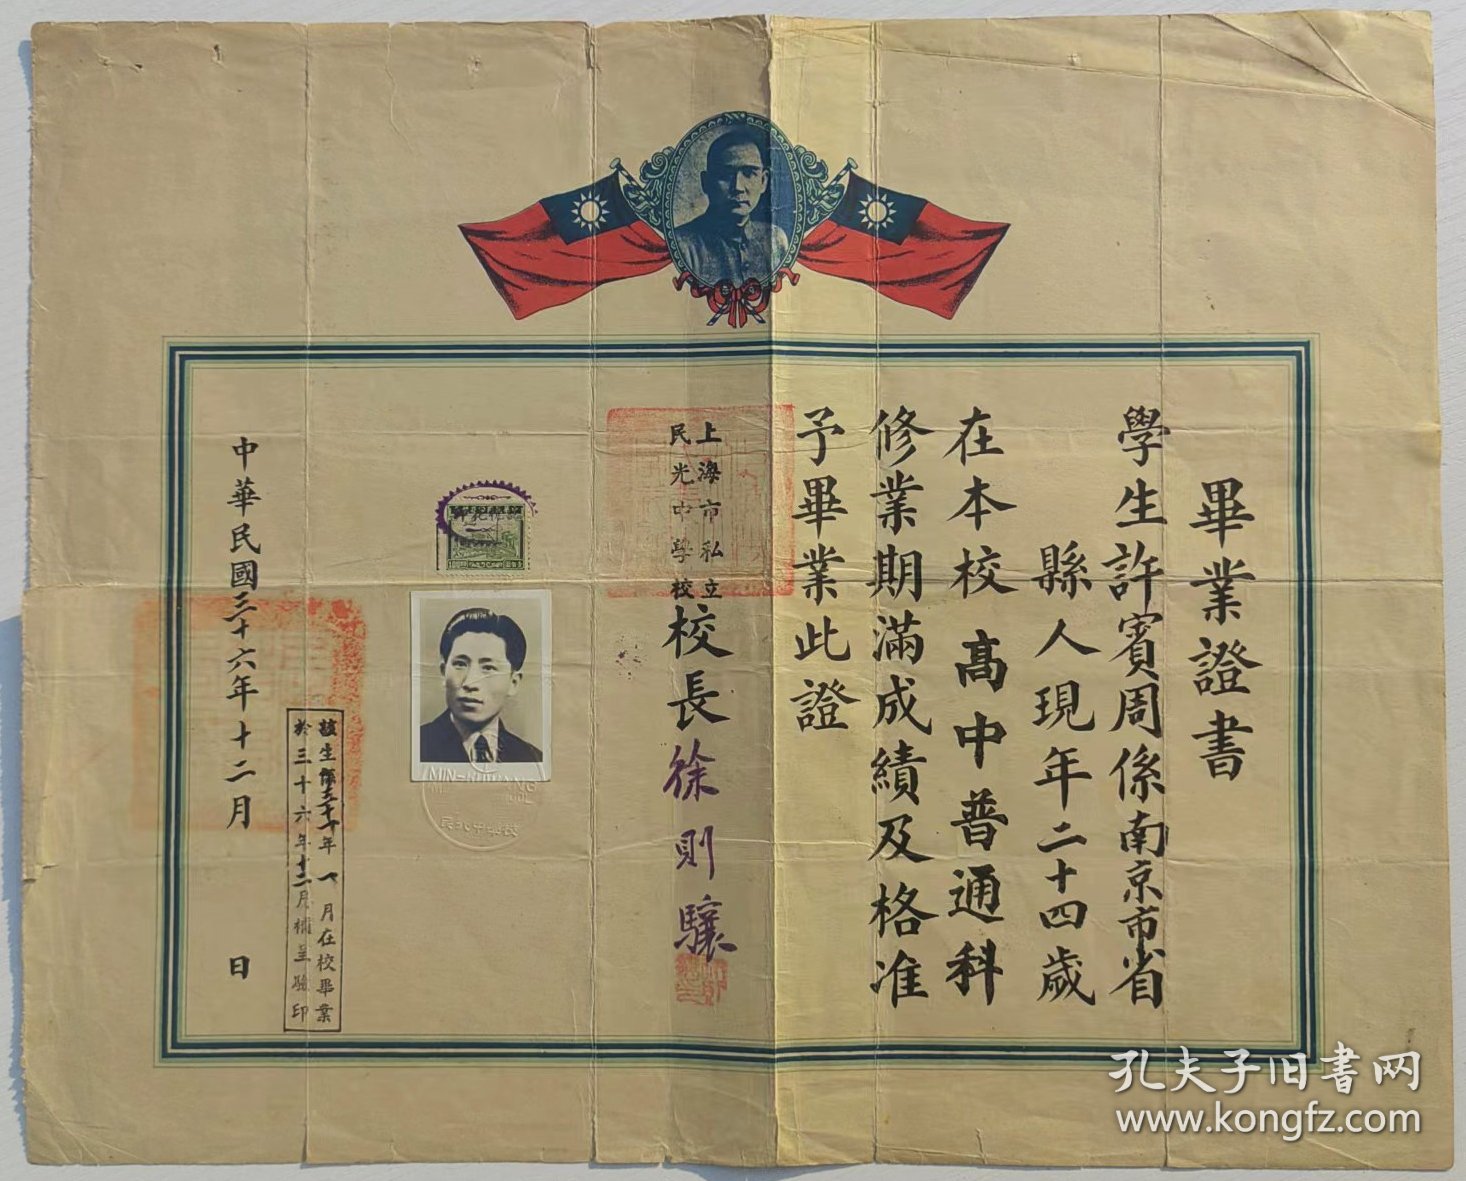 畢業證書
學生許賓周係南京市省
縣人現年二十四歲
在本校高中普通科
修業期滿成績及格准
予畢業此證
上海市私立
民光中學校
校長徐則驤
中華民國三十六年十二月 日
年一月在校畢業
於三十六年十二月補呈驗印
MIN-KUWANG
孔夫子旧书网
www.kongfz.com